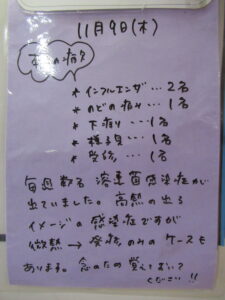 11月9日(木)
本日の病欠
* インフルエンザ…2名
* のどの痛み…1名
* 下痢…1名
* 1名
* 発熱…1名
毎週数名 溶連菌感染症が
出ていました。高熱の出る
イメージの感染症ですが
微熱→発疹のみのケースも
あります。念のため覚えておいて
ください!!